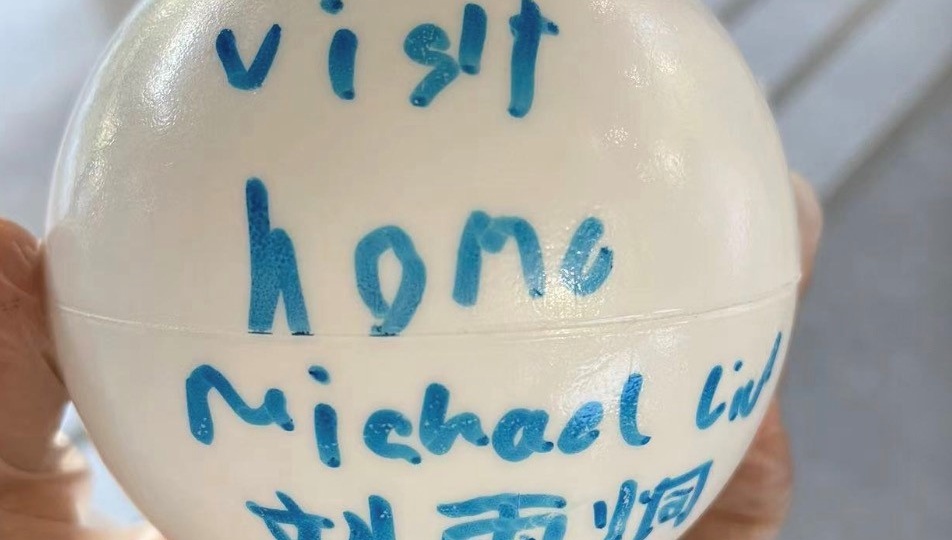 visit
home
Michael Liu
刘雨炯